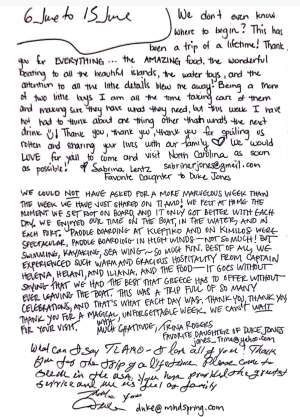 6 June to 13 June
We don't even know
where to begin? This has
been a trip of a lifetime! Thank
you for EVERYTHING ... the AMAZING food, the wonderful
boating to all the beautiful islands, the water toys, and the
attention to all the little details blew me away! Being a Mom
of two little boys I am all the time taking care of them
and making sure they have what they need, but this week I have
not had to think about one thing other than what's the next
drink! Thank you, thank you, thank you for spoiling us
rotten and sharing your lives with our family. We would
LOVE for y'all to come and visit North Carolina as soon
as possible! Sabrina Lentz
Favorite Daughter to Duke Jones
WE COULD NOT HAVE ASKED FOR A MORE MARVELOUS WEEK THAN
THE WEEK WE HAVE JUST SHARED ON TIAMO! WE FELT AT HOME THE
MOMENT WE SET FOOT ON BOARD, AND IT ONLY GOT BETTER WITH EACH
DAY. WE ENJOYED OUR TIME ON THE BOAT, IN THE WATER, AND IN
EACH PORT. PADDLE BOARDING AT KLEFTIKO AND ON KIMILOS WERE
SPECTACULAR, PADDLE BOARDING IN HIGH WINDS - NOT SO MUCH! BUT
SWIMMING, KAYAKING, SEA WING - SO MUCH FUN. BEST OF ALL, WE
EXPERIENCED SUCH WARM AND GRACIOUS HOSPITALITY FROM CAPTAIN
HELENA, HELANI, AND ILIANA, AND THE FOOD - IT GOES WITHOUT
SAYING THAT WE HAD THE BEST THAT GREECE HAS TO OFFER WITHOUT
EVER LEAVING THE BOAT. THIS WAS A TRIP FULL OF SO MANY
CELEBRATIONS, AND THAT'S WHAT EACH DAY WAS. THANK YOU, THANK YOU,
THANK YOU FOR A MAGICAL, UNFORGETTABLE WEEK. WE CAN'T WAIT
FOR YOUR VISIT. WITH MUCH GRATITUDE, TRINA ROGERS
FAVORITE DAUGHTER OF DUKE JONES
What can I say TIAMO - I love all of you! Thank
you for the trip of a lifetime. Please come to
service and
family
Thank you
Duke duke@mhdspring.com